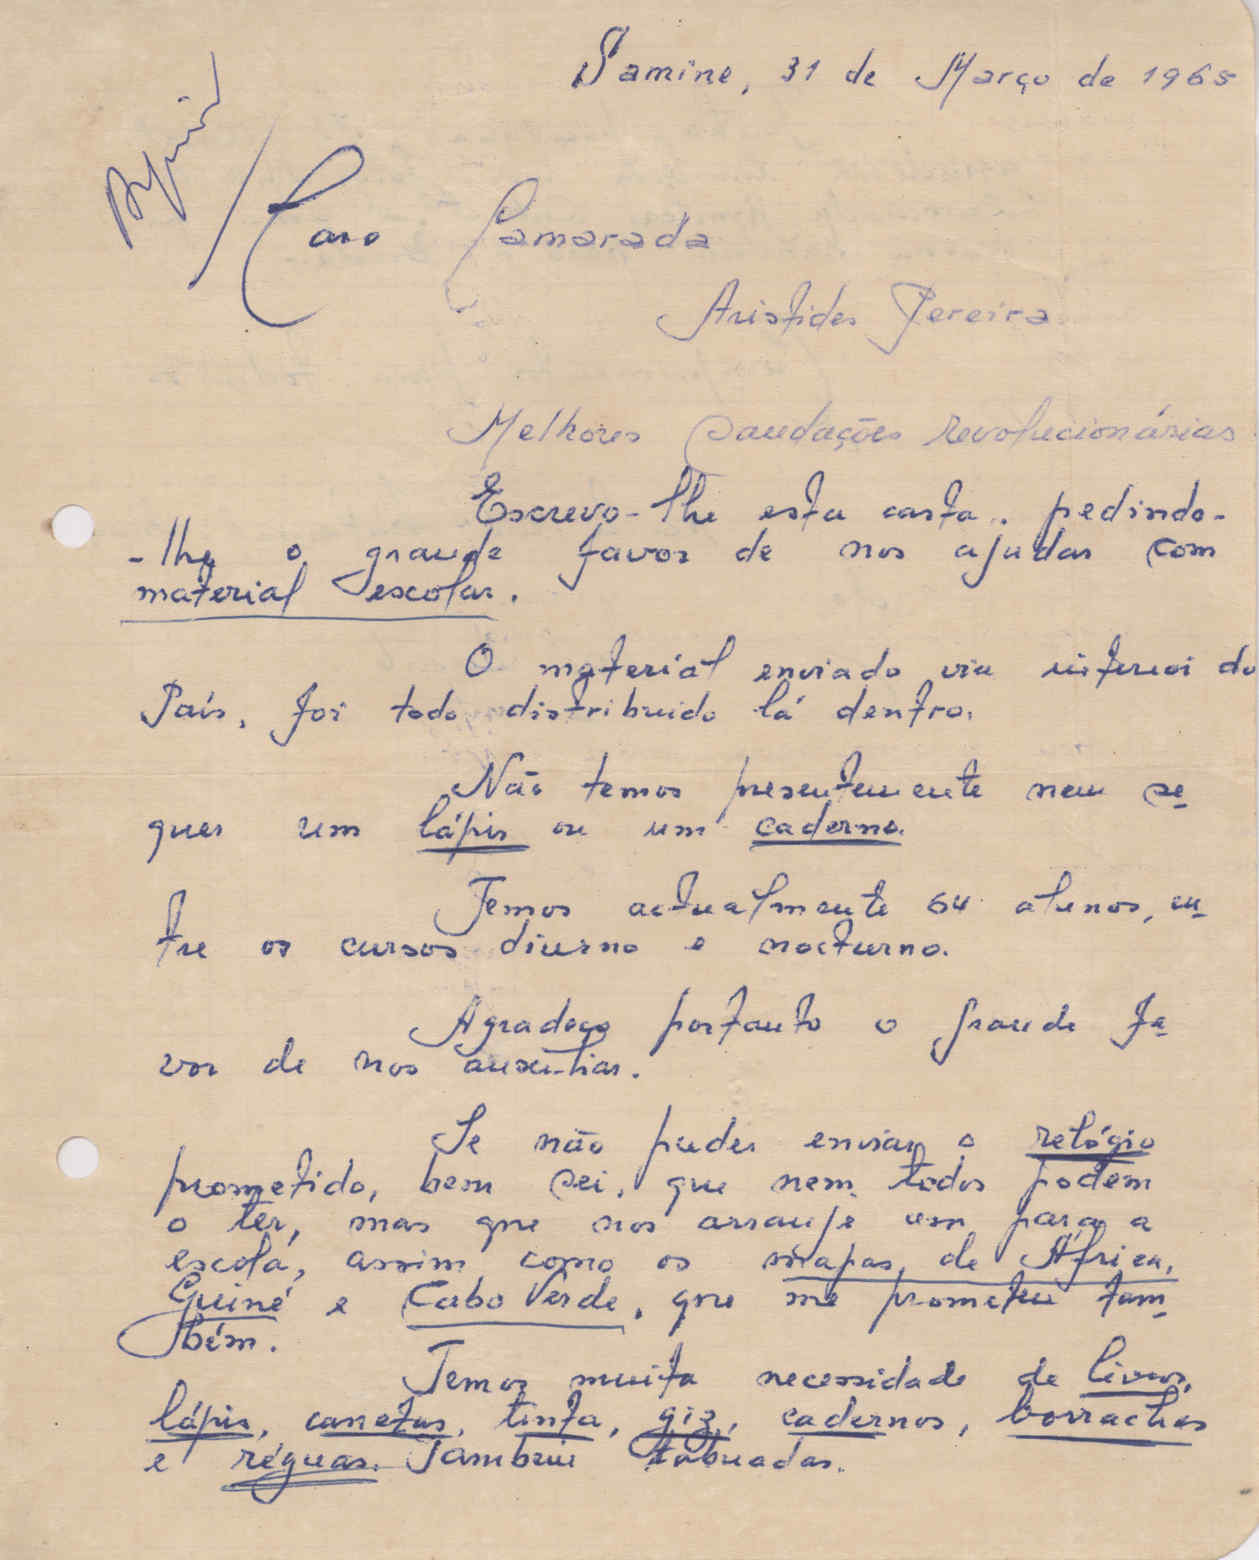 Samine, 31 de Março de 1965
Caro Camarada
Aristides Pereira
Melhores saudações revolucionárias
Escrevo-lhe esta carta, pedindo-
-lhe o grande favor de nos ajudar com
material escolar.
O material enviado via interior do
País, foi todo distribuido lá dentro.
Não temos presentemente nem se-
quer um lápis ou um caderno.
Temos actualmente 64 alunos, en-
tre os cursos diurno e nocturno.
Agradeço portanto o grande fa-
vor de nos auxiliar.
Se não puder enviar o relógio
prometido, bem sei, que nem todos podem
o ter, mas que nos arranje um para a
escola, assim como os mapas, de África,
Guiné e Cabo Verde, que me prometeu tam-
bém.
Temos muita necessidade de livros,
lápis, canetas, tinta, giz, cadernos, borrachas
e réguas. Também tabuadas.